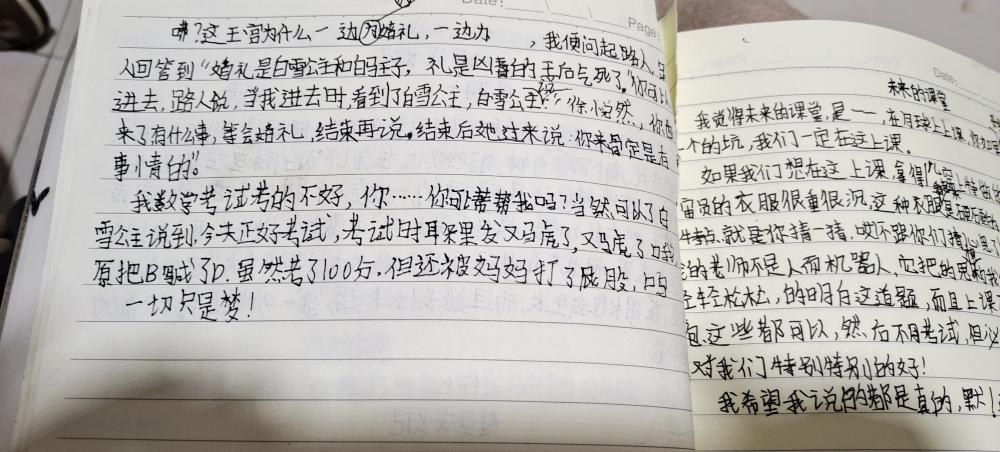 Date:
Page:
咦?这王宫为什么一边为婚礼,一边为 ,我便问起路人,
人回答到“婚礼是白雪公主和白马王子,礼是凶番的王后气死了。”你可以
进去,路人说,当我进去时,看到了白雪公主,白雪公主 徐小悦然,你
来了有什么事,等会婚礼,结束再说。结束后她过来说:你来肯定是有
事情的”。
我数学考试考的不好,你……你可让帮帮我吗?当然可以了白
雪公主说到,今天正好考试,考试时耳朵里发又马虎了,又马虎了
原把B写成了D.虽然考了100分,但还被妈妈打了屁股,
一切只是梦!
Date:
未来的课堂
我觉得未来的课堂,是一 在月球上上课,你
个的坑,我们一定在这上课。
如果我们想在这上课,拿得
宙员的衣服很重很沉,这种衣服
就是你猜一猜,哎不跟你们
的老师不是人而机器人,它把的
轻轻松松,的明白这道题,而且上课
包,这些都可以,然后不用考试,但必
对我们特别特别的好!
我希望我说的都是真的,默!